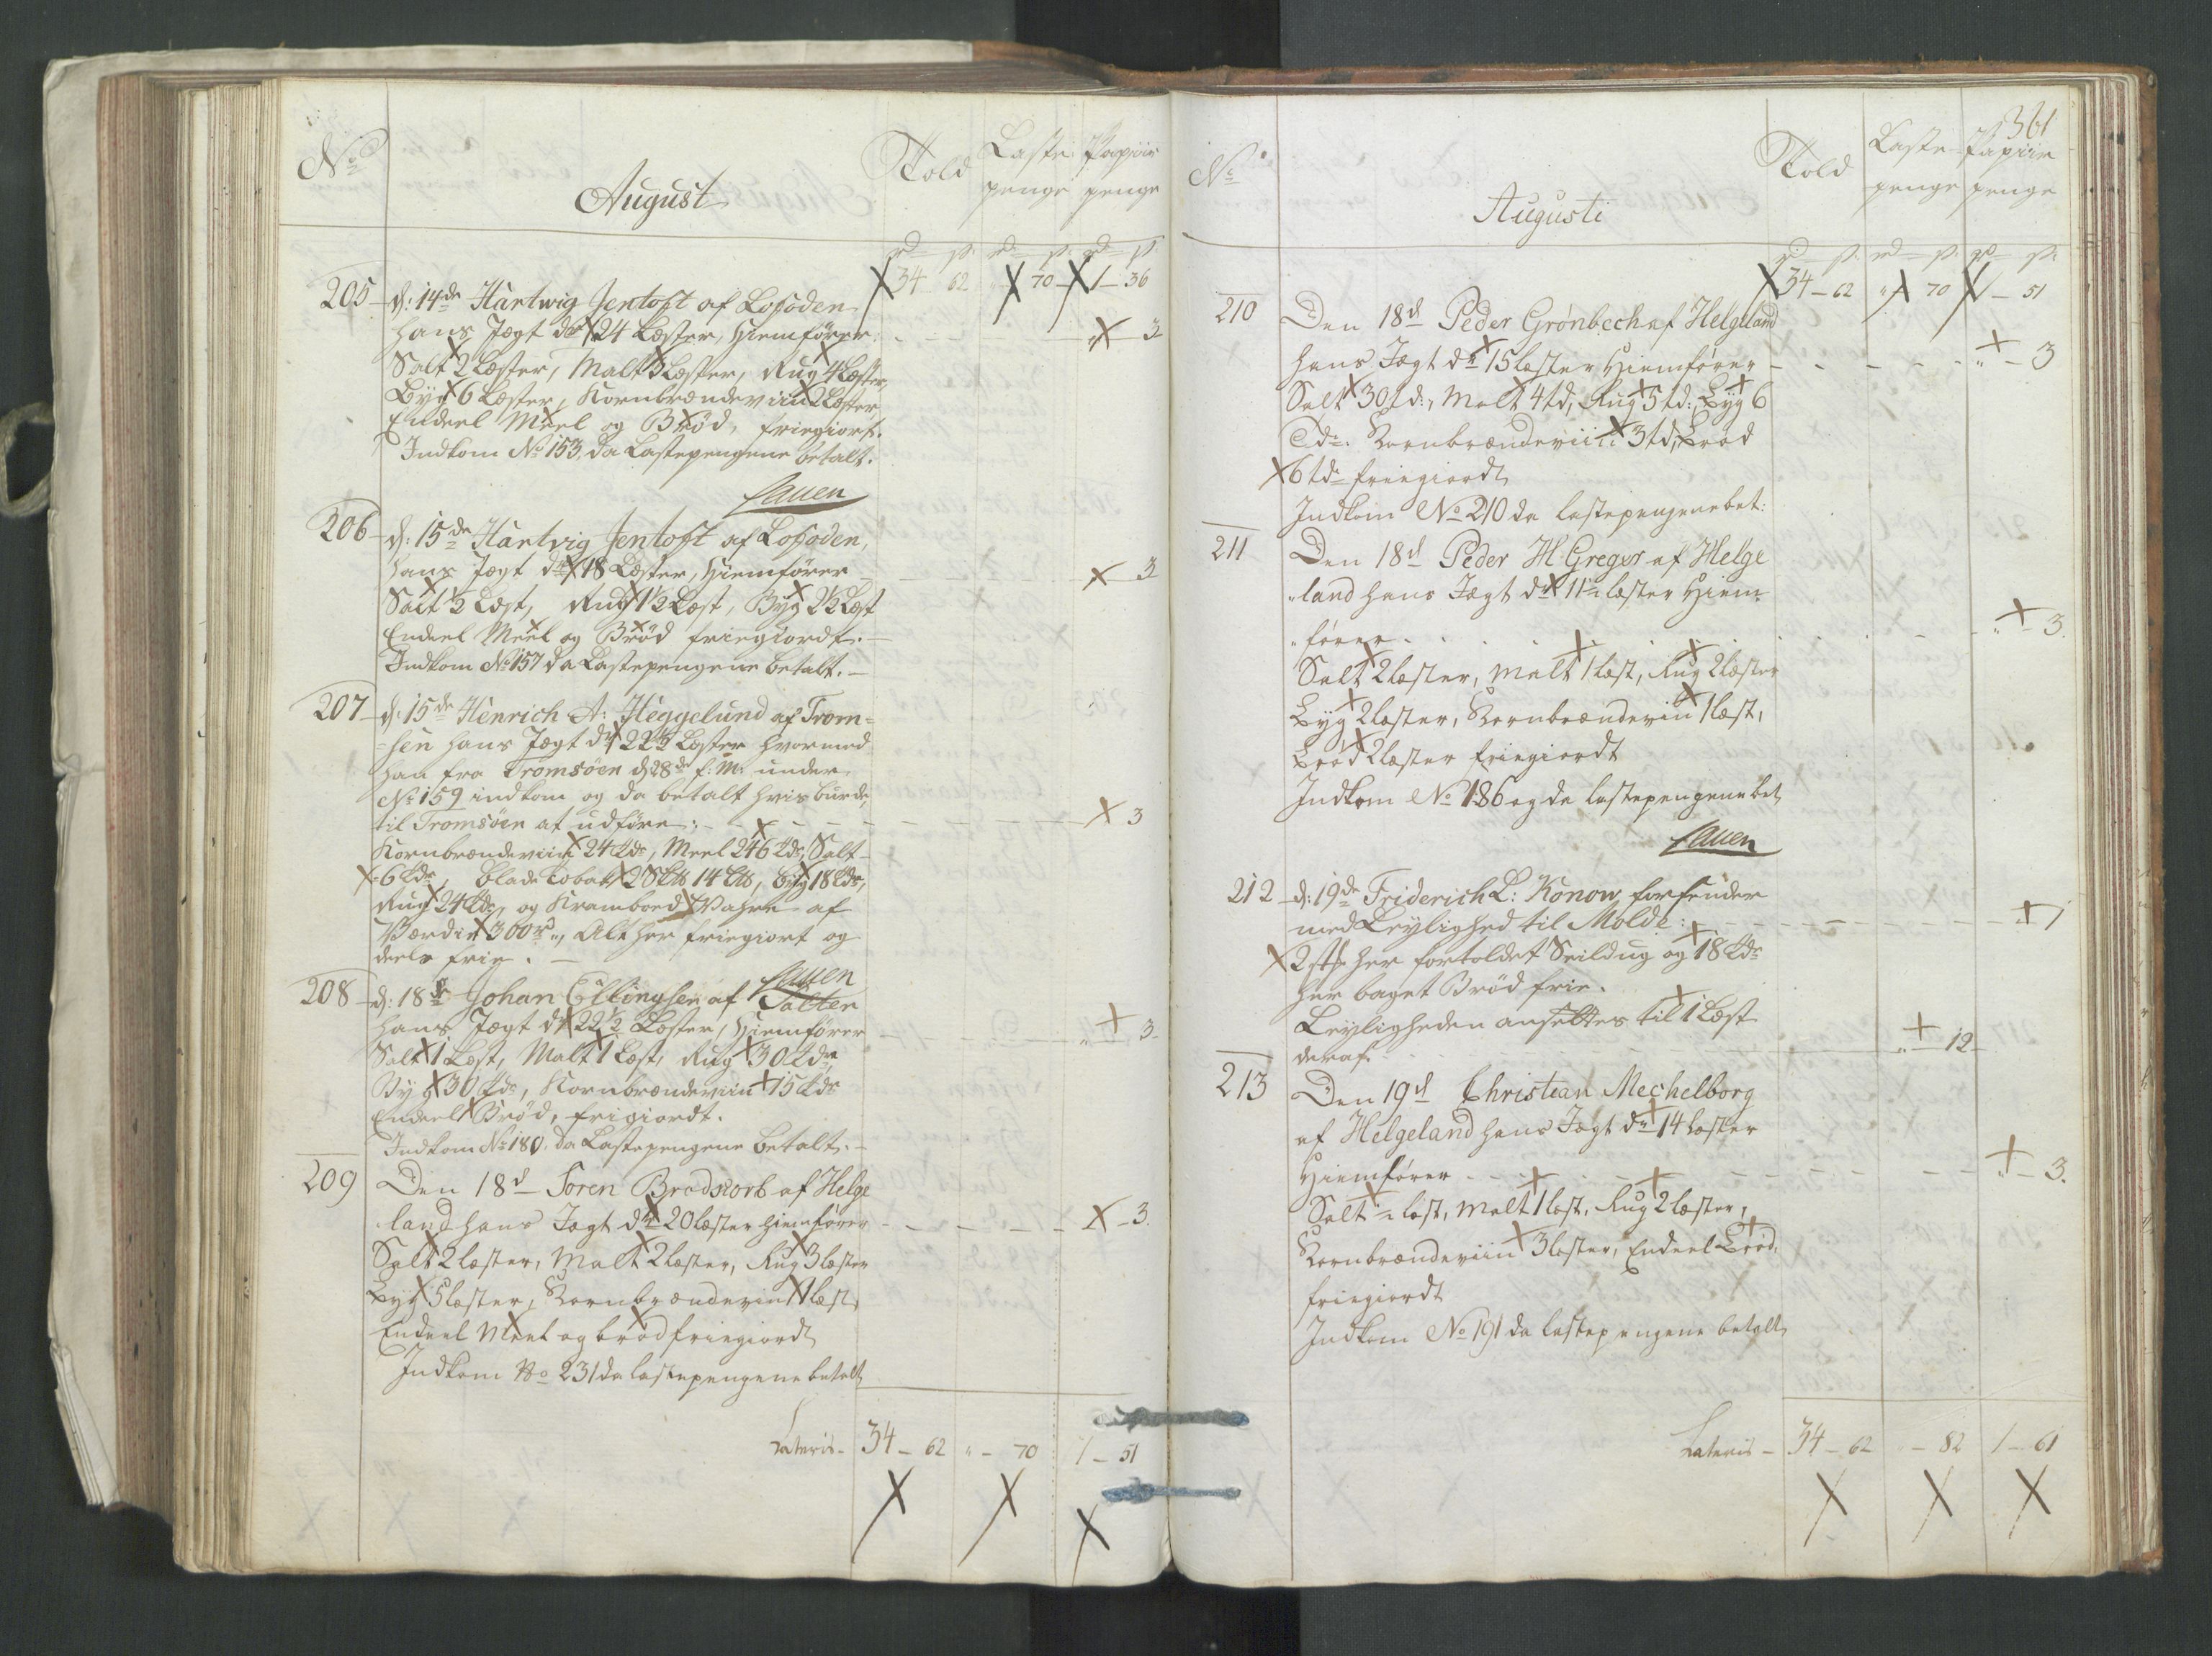 No
August
Told
Laste penge
Papiir penge
rd s. rd s. rd s.
34 62 " 70 1 - 36
205 d: 14de Hartwig Jentoft af Lofoden
hans Jægt dr 24 Læster, Hiemfører " - 3
Salt 2 Læster, Malt 3 Læster, Rug 4 Læster,
Byg 6 Læster, Kornbrændeviin 2 Læster
Endeel Meel og Brød, friegiort.
Indkom No 153, da Lastepengene betalt.
Lauen
206 d: 15de Hartvig Jentoft af Lofoden,
hans Jægt dr 18 Læster, Hiemfører 3
Salt ½ Læst, Rug 1½ Læst, Byg 2½ Læst
Endeel Meel og Brød friegiordt.
Indkom No 157 da Lastepengene betalt.
207 d: 15de Henrich A: Heggelund af Trom=
=sen hans Jægt dr 22½ Læster hvormed
han fra Tromsöen d 28de f: M: under
No 159 indkom og da betalt hvis burde,
til Tromsöen at udföre: 3
Kornbrændeviin 24 tdr, Meel 246 tdr, Salt
6 tdr, Blade Tobak 2 Sk℔ 14 ℔, Byg 18 tdr,
Rug 24 tdr, og Kramboed Vahre af
Værdie 300 r, Alt her friegiort og
deels frie.
Lauen
208 d: 18de Johan Ellingsen af Salten
hans Jægt dr 22½ Læster, Hiemfører " 3
Salt 1 Læst, Malt 1 Læst, Rug 30 tdr,
Byg 30 tdr, Kornbrændeviin 15 tdr
Endeel Brød, frigiordt.
Indkom No 180, da Lastepengene betalt.
209 Den 18d Soren Brodskorb af Helge
land hans Jægt dr 20 læster hiemfører - 3.
Salt 2 læster, Malt 2 læster, Rug 3 læster
Byg 5 læster, Kornbrændeviin 1 læst,
Endeel Meel og brød friegiordt
Indkom No 231 da lastepengene betalt
Lateris - 34 - 62 " - 70 1 - 51
361
No
Augusti
Told
Laste penge
Papiir penge
rd s. rd s. rd s.
34 - 62 " 70 1 - 51
210 Den 18d Peder Grønbech af Helgeland
hans Jægt dr 15 læster Hiemfører " - 3
Salt 30 td:, Malt 4 td, Rug 5 td:, Byg 6
Tdr. Kornbrændeviin 3 td, Brød
6 tdr friegiordt
Indkom No 210 da lastepengene bet:
211 Den 18d Peder H Greger af Helge
"land hans Jægt dr 11 læster Hiem
"fører " - 3.
Salt 2 læster, Malt 1 læst, Rug 2 læster
Byg 2 læster, Kornbrændeviin 1 læst,
Brød 2 læster friegiordt
Indkom No 186 og da lastepengene bet
Lauen
212 d: 19de Friderich L: Konow forsender
med Leylighed til Molde: 1
2 st her fortoldet Seildug og 18 tdr
her baget Brød frie.
Leyligheden ansettes til 1 Læst
deraf " 12
213 Den 19d Christian Mechelborg
af Helgeland hans Jægt dr 14 læster
Hiemfører " - 3.
Salt læst, Malt 1 læst, Rug 2 læster,
Kornbrændeviin 3 læster, Endeel Brød,
friegiordt
Indkom No 191 da lastepengene betalt
Lateris - 34 - 62 - 82 1 - 61